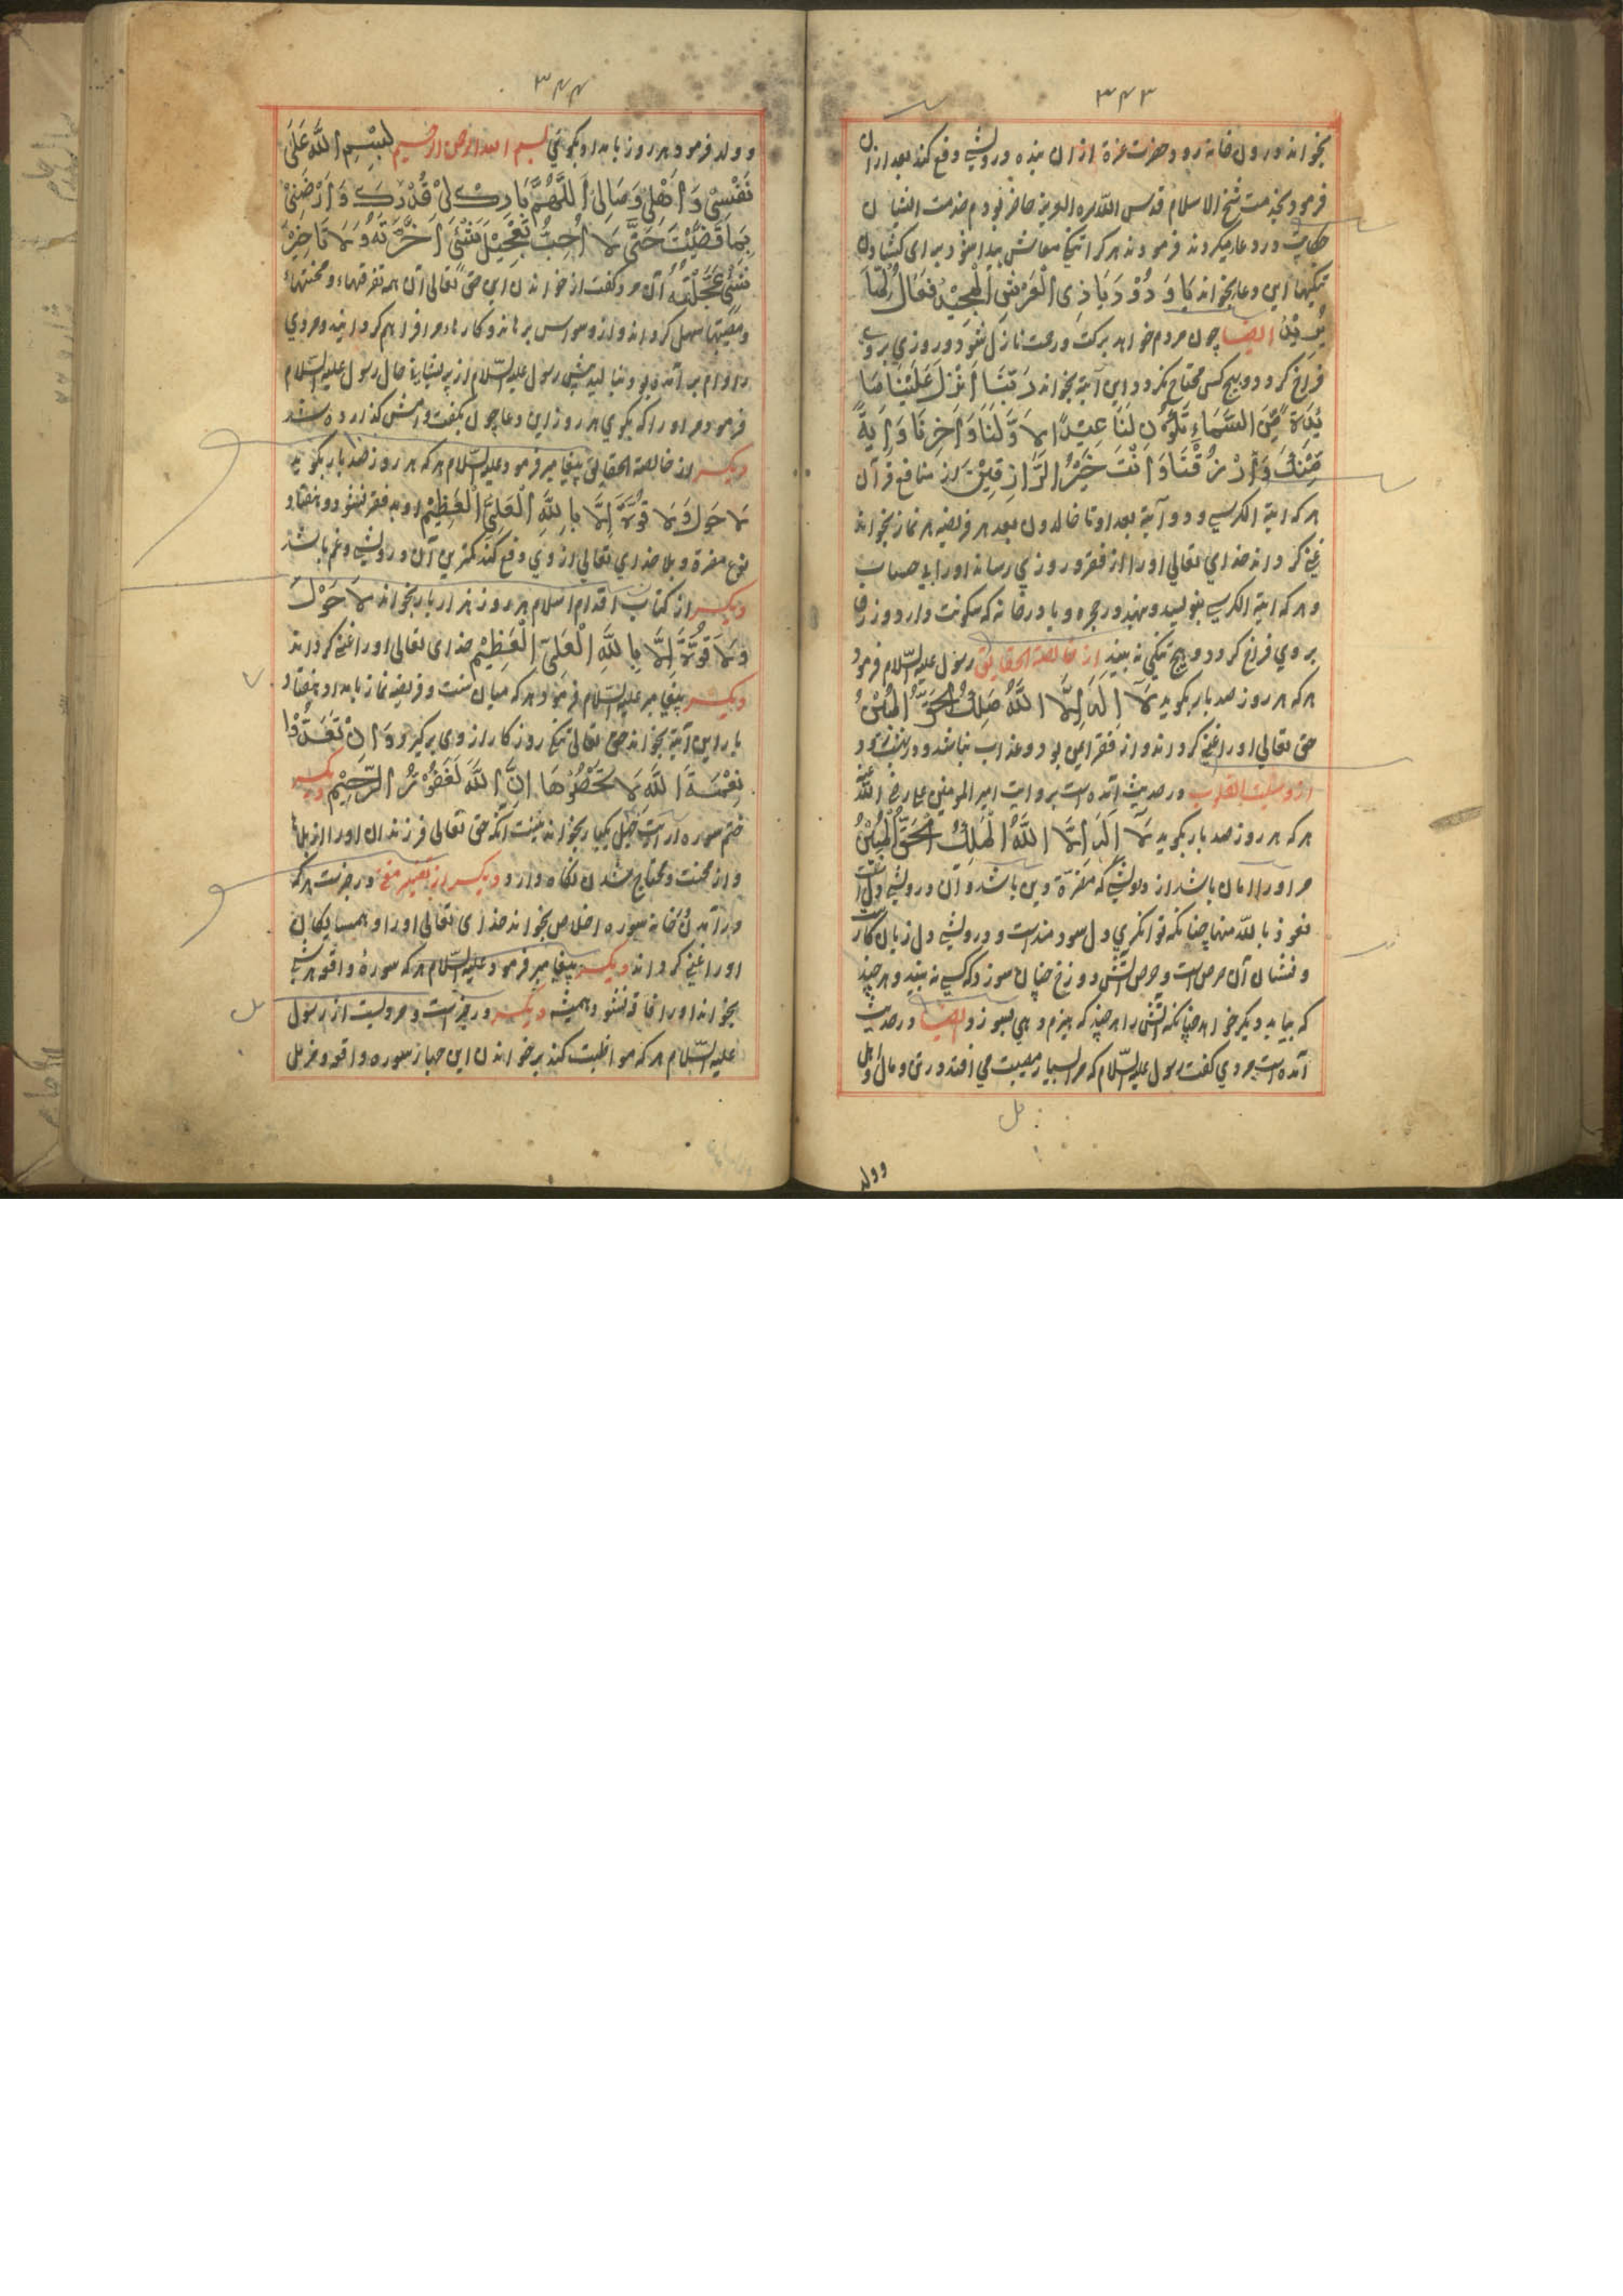 ۳۴۳
بخواند درون خانه رود حضرت عزة از ان بنده درویشی دفع کند بعد ازان
فرمود بخدمت شیخ الاسلام قدس الله سره العزیز حاضر بودم خدمت ایشان
حکایت در دعا میکردند فرمودند هر کرا تنگی معاش پیدا شود برای کشادن
تنگیها این دعا بخواند یَا وَدُوْدُ یَا ذِی الْعَرْشِ الْمَجِیْدِ فَعَّالٌ لِّمَا
یُرِیْدُ ایضا چون مردم خواهد برکت و رحمت نازل شود و روزی بروی
فراخ گردد و هیچ کس محتاج نگردد این آیة بخواند رَبَّنَا اَنْزِلْ عَلَیْنَا مَا
ئِدَةً مِّنَ السَّمَاءِ تَكُوْنُ لَنَا عِیْدًا لِاَوَّلِنَا وَاٰخِرِنَا وَاٰیَةً
مِّنْكَ وَارْزُقْنَا وَاَنْتَ خَیْرُ الرَّازِقِیْنَ از منافع قرآن
هر که ایة الکرسی و دو آیة بعد او تا خالدون بعد هر فریضه هر نماز بخواند
غنی گرداند خدای تعالی او را از فقر و روزی رساند او را بی حساب
و هر که ایة الکرسی بنویسد و بنهد در حجره و یا در خانه که سکونت دارد روزی
بروی فراخ گردد و هیچ تنگی نه بیند از خالصة الحقایق رسول علیه السّلام فرمود
هر که هر روز صد بار بگوید لَا اِلٰهَ اِلَّا اللّٰهُ مَلِكُ الْحَقُّ الْمُبِیْنُ
حق تعالی او را غنی گرداند و از فقر ایمن بود و عذاب نباشد و در بهشت رود
از وسیلت القلوب در حدیث آمده است بروایت امیر المومنین علی رضی اللّٰه عنه
هر که هر روز صد بار بگوید لَا اِلٰهَ اِلَّا اللّٰهُ الْمَلِكُ الْحَقُّ الْمُبِیْنُ
مر او را امان باشد از درویشی که مضرة دین باشد و آن درویشی دل است
نعوذ باللّٰه منها چنانکه توانگری دل سودمند است و درویشی دل زیان کار
و نشان آن حرص است و حرص آتش دوزخ چنان سوزد که کسی نه بیند و هر چند
که بیابد دیگر خواهد چنانکه آتش را هر چند که هیزم دهی بسوزد ایضا در حدیث
آمده است مردی گفت رسول علیه السّلام که مرا بسیار مصیبت می افتد در تن و مال و اهل
وولد
۳۴۴
وولد فرمود هر روز بامداد بگوئی بسم الله الرحمن الرحیم بِسْمِ اللّٰهِ عَلٰی
نَفْسِیْ وَاَهْلِیْ وَمَالِیْ اَللّٰهُمَّ بَارِكْ لِیْ قُدْرَتِكَ وَاَرْضِنِیْ
بِمَا قَضَیْتَ حَتّٰی لَا اُحِبَّ تَعْجِیْلَ شَیْئٍ اَخَّرْتَهُ وَلَا تَاخِیْرَ
شَیْئٍ عَجَّلْتَهُ آن مرد گفت از خواندن این حق تعالی آن همه تفرقها و محنتها
و مصیبتها سهل گرداند و از وسواس برهاند و کارهاء مرا فراهم گردانید و مردی
را وام بر آمده بود بنالید پیش رسول علیه السّلام از پریشانیة حال رسول علیه السّلام
فرمود مر او را که بگوی هر روز این دعا چون بگفت وامش گذارده شد
دیگر از خالصة الحقایق پیغامبر فرمود علیه السّلام هر که هر روز صد بار بگوید
لَا حَوْلَ وَلَا قُوَّةَ اِلَّا بِاللّٰهِ الْعَلِیِّ الْعَظِیْمِ او به فقر نشود و هفتاد
نوع مضرة و بلا خدای تعالی از وی دفع کند کمترین آن درویشی و غم باشد
دیگر از کتاب اقدام اسلام هر روز هزار بار بخواند لَا حَوْلَ
وَلَا قُوَّةَ اِلَّا بِاللّٰهِ الْعَلِیِّ الْعَظِیْمِ خدای تعالی او را غنی گرداند
دیگر پیغامبر علیه السّلام فرمود هر که میان سنت و فریضه نماز بامداد هفتاد
بار این آیة بخواند حق تعالی تنگی روزگار از وی برگیرد وَاِنْ تَعُدُّوْا
نِعْمَةَ اللّٰهِ لَا تُحْصُوْهَا اِنَّ اللّٰهَ لَغَفُوْرُ الرَّحِیْمٌ دیگر
ختم سوره آرائت چهل یکبار بخواند بنیت آنکه حق تعالی فرزندان او را از بلا
و از محنت و محتاج شدن نگاه دارد دیگر از تفسیر مغنی در خبر است هر که
در آمدن خانه سوره اخلاص بخواند خدای تعالی او را و همسایگان
او را غنی گرداند دیگر پیغامبر فرمود علیه السّلام هر که سورۀ واقعه هر شب
بخواند او را فاقه نشود همیشه دیگر در خبر است و مرویست از رسول
علیه السّلام هر که مواظبت کند بر خواندن این چهار سوره واقعه و مزمل